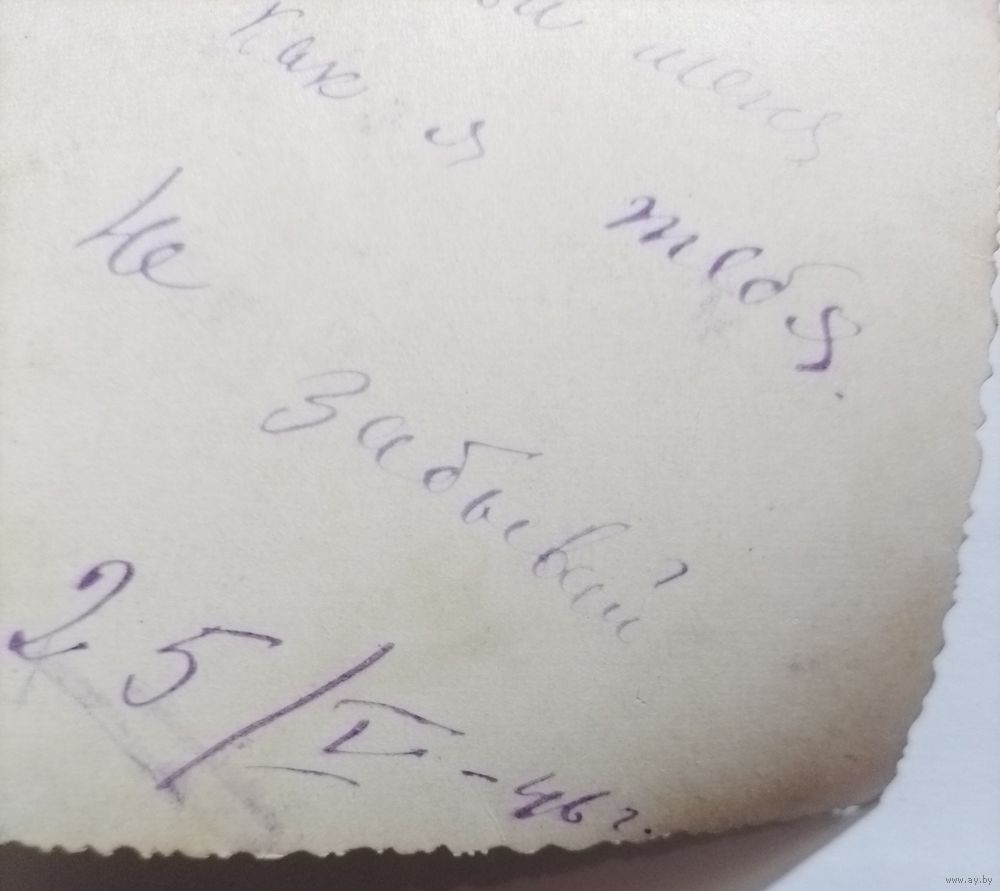 меня
как я тебя.
Не забывай
25/V-46 г.
www.ay.by